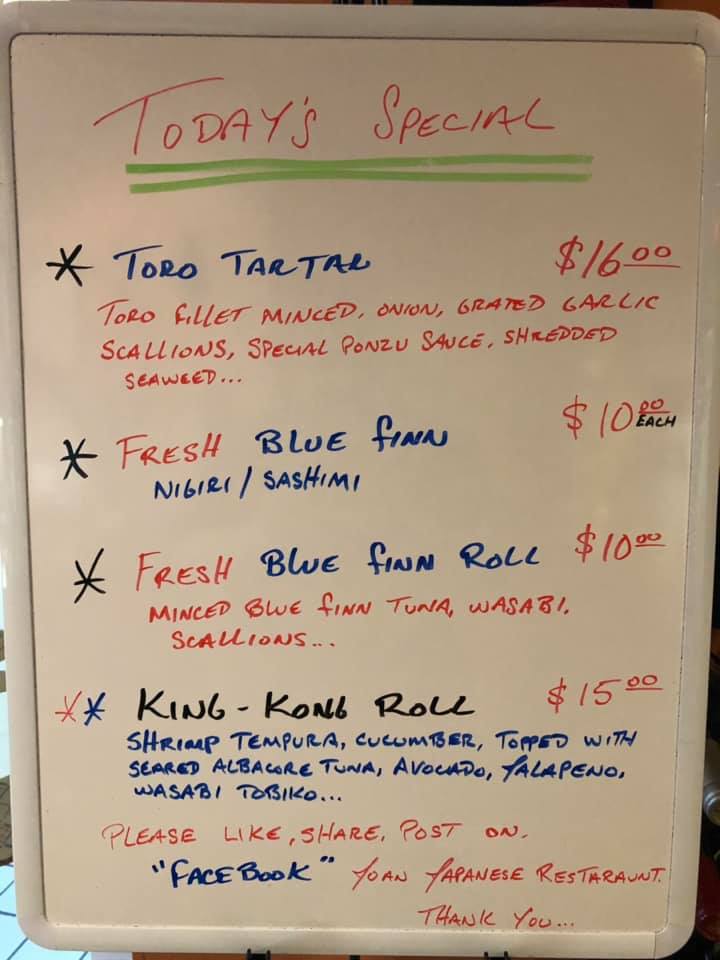 TODAY'S SPECIAL
* TORO TARTAR $16.00
TORO FILLET MINCED, ONION, GRATED GARLIC
SCALLIONS, SPECIAL PONZU SAUCE, SHREDDED
SEAWEED...
* FRESH BLUE FINN $10.00 EACH
NIGIRI / SASHIMI
* FRESH BLUE FINN ROLL $10.00
MINCED BLUE FINN TUNA, WASABI,
SCALLIONS...
** KING-KONG ROLL $15.00
SHRIMP TEMPURA, CUCUMBER, TOPPED WITH
SEARED ALBACORE TUNA, AVOCADO, JALAPENO,
WASABI TOBIKO...
PLEASE LIKE, SHARE, POST ON.
"FACEBOOK" JOAN JAPANESE RESTARAUNT.
THANK YOU...